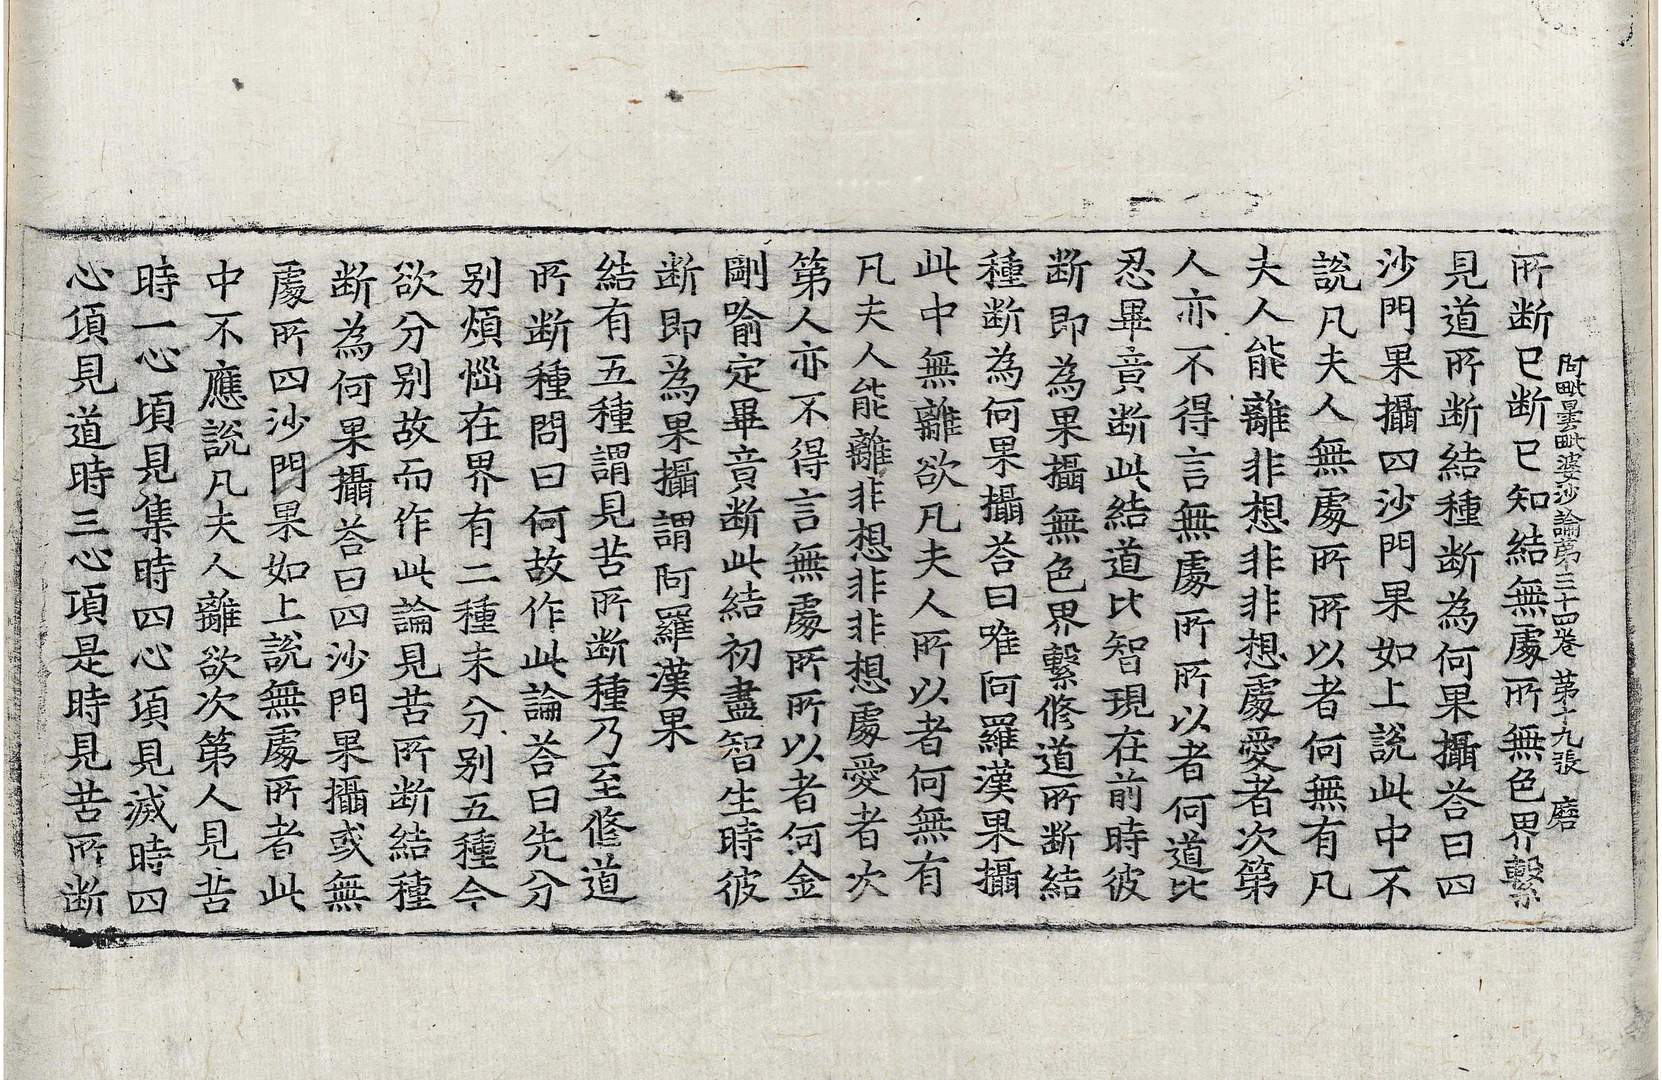 阿毗曇毗婆沙論第三十四卷　第十九張　磨
所断已断已知結無處所無色界繫
見道所断結種断為何果攝荅曰四
沙門果攝四沙門果如上說此中不
說凡夫人無處所所以者何無有凡
夫人能離非想非非想處愛者次第
人亦不得言無處所所以者何道比
忍畢竟断此結道比智現在前時彼
断即為果攝無色界繫修道所断結
種断為何果攝荅曰唯阿羅漢果攝
此中無離欲凡夫人所以者何無有
凡夫人能離非想非非想處愛者次
第人亦不得言無處所所以者何金
剛喻定畢竟断此結初盡智生時彼
断即為果攝謂阿羅漢果
結有五種謂見苦所断種乃至修道
所断種問曰何故作此論荅曰先分
別煩惱在界有二種未分別五種今
欲分別故而作此論見苦所断結種
断為何果攝荅曰四沙門果攝或無
處所四沙門果如上說無處所者此
中不應說凡夫人離欲次第人見苦
時一心頃見集時四心項見滅時四
心項見道時三心項是時見苦所断